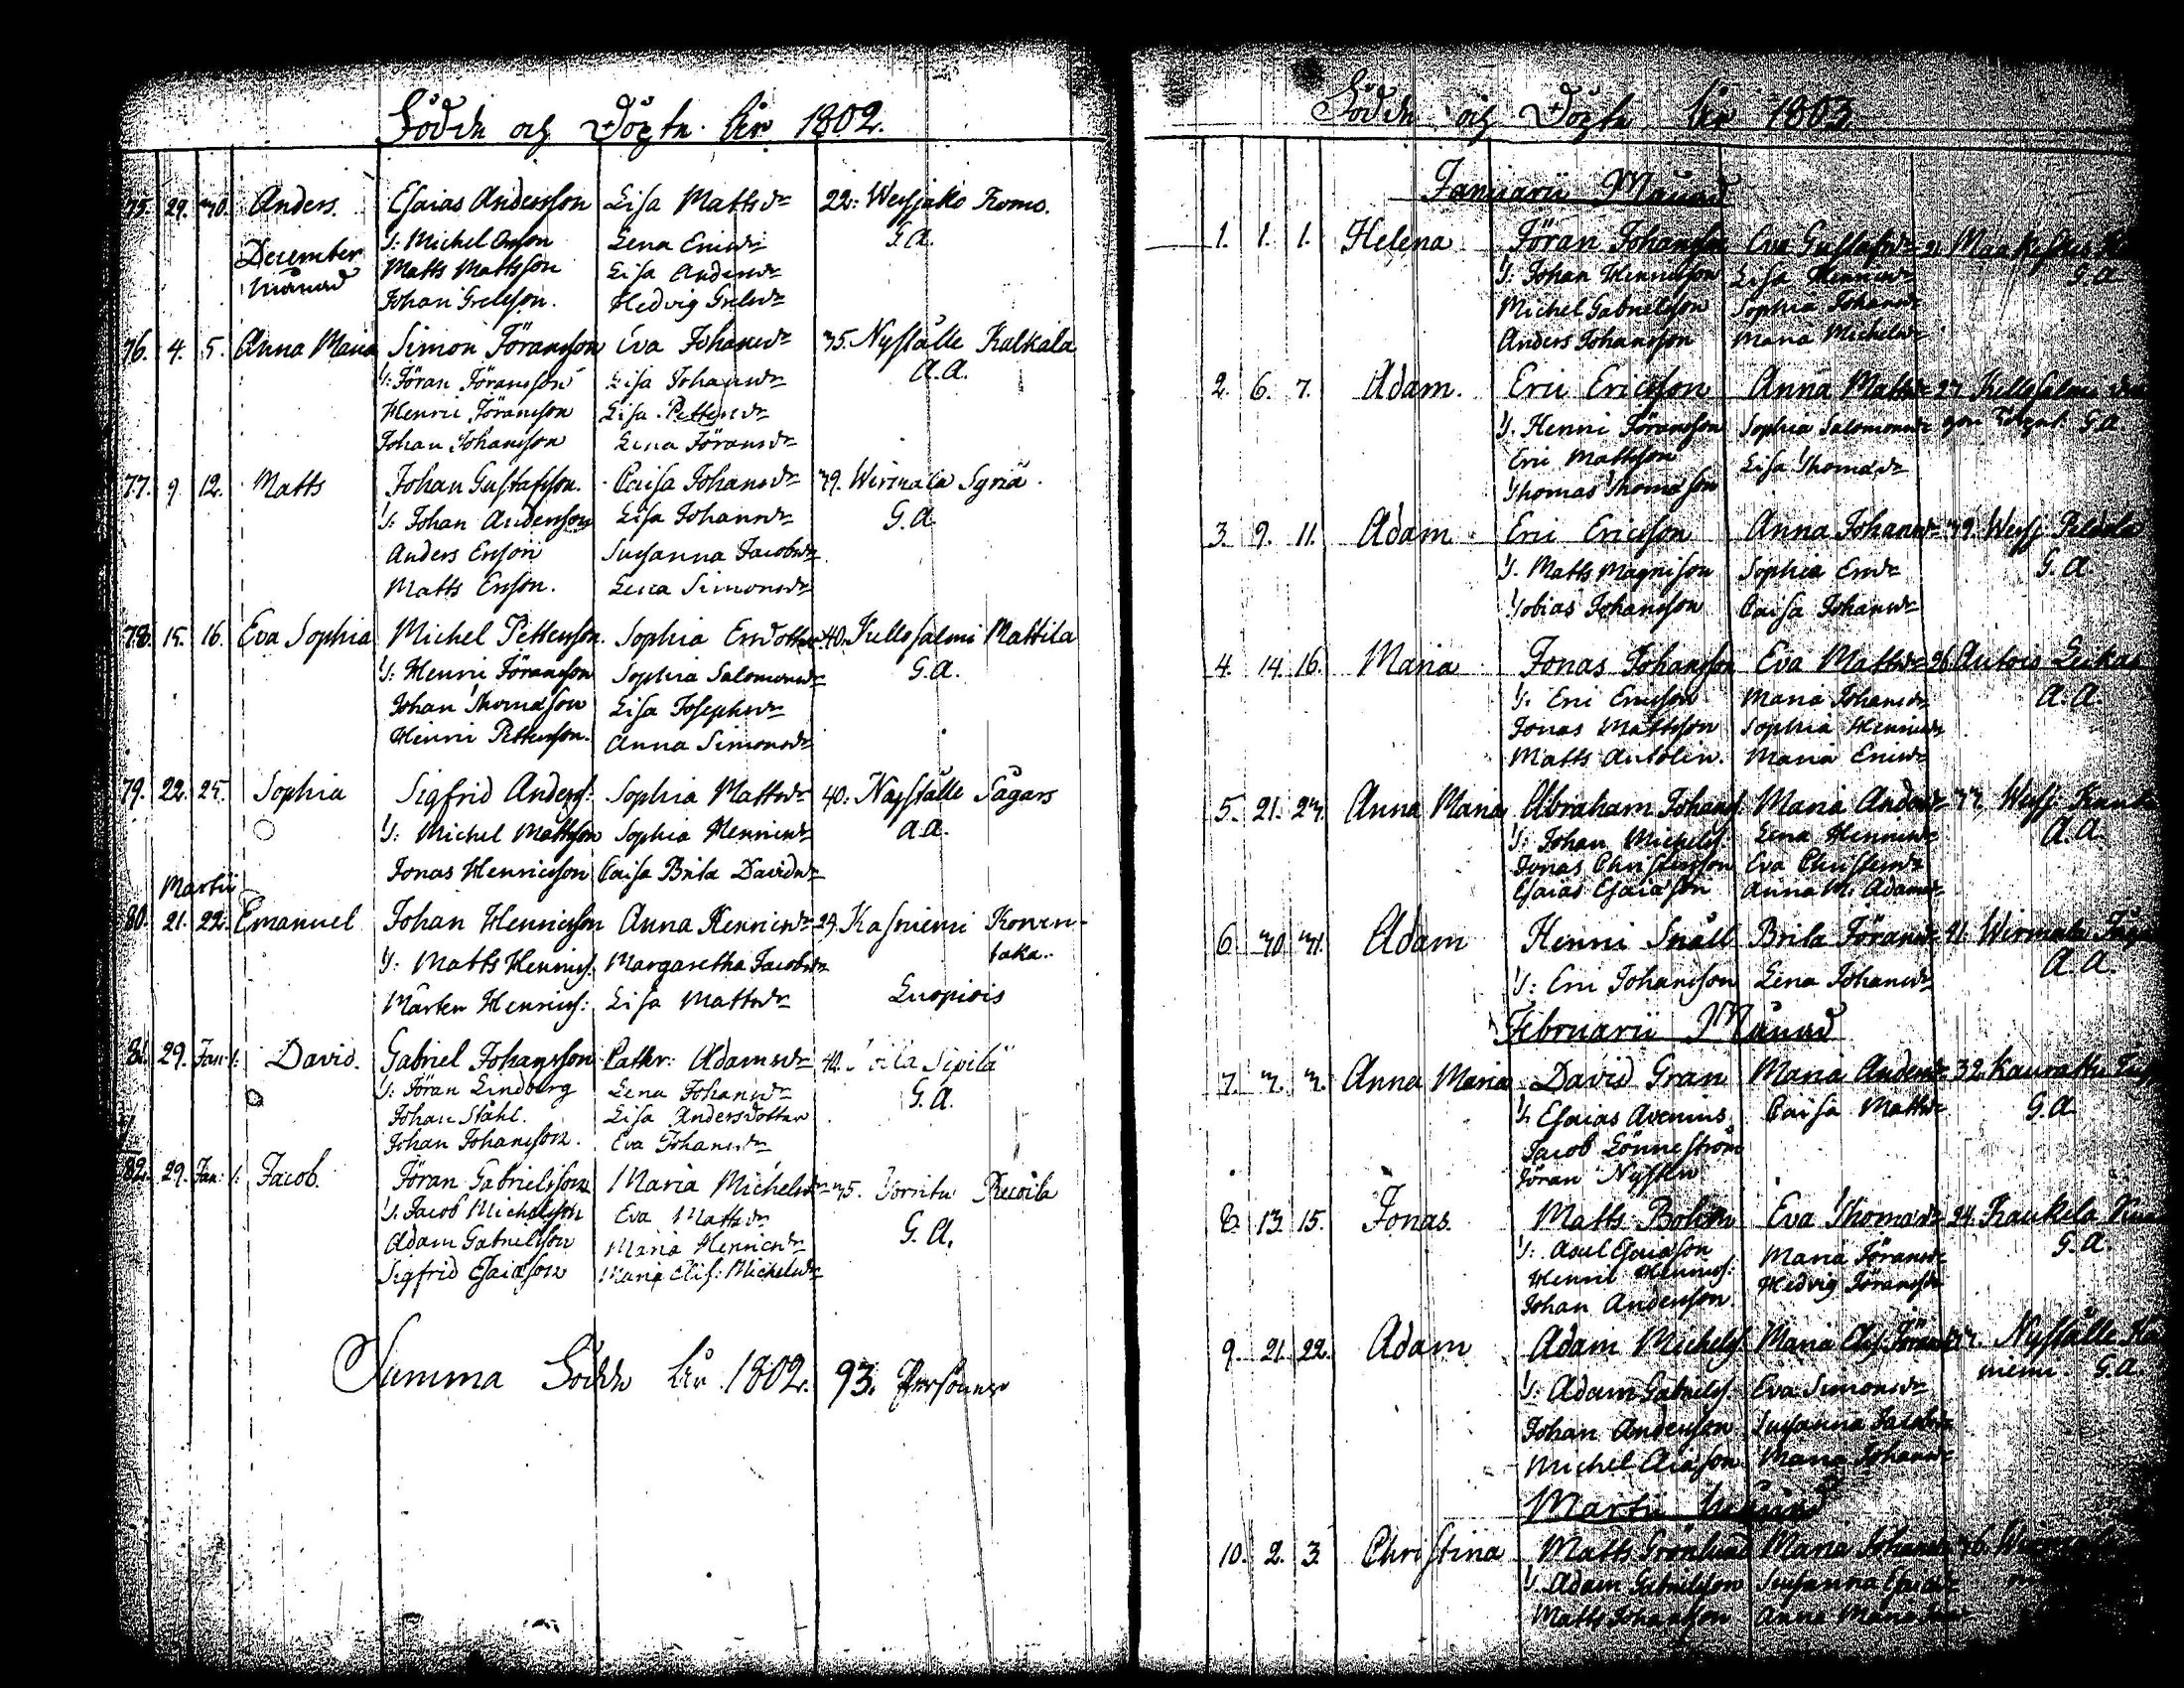 Födde och Döpte År 1802.
75. 29. 30. Anders. Esaias Andersson Lisa Mattsdr 22. Wessjako Komo.
T: Michel Ersson Lena Ericsdr G.A.
December Månad
Matts Mattsson Lisa Andersdr
Johan Grelsson. Hedvig Grelsdr
76. 4. 5. Anna Maria Simon Jöransson Eva Johansdr 35. Nyställe Kalkala
T: Jöran Jöransson Lisa Johansdr A.A.
Henric Jöransson Lisa Pettersdr
Johan Johansson Lena Jöransdr
77. 9. 12. Matts Johan Gustafsson. Caisa Johansdr 39. Wirmala Syriä.
T: Johan Andersson Lisa Johansdr G.A.
Anders Ersson Susanna Jacobsdr
Matts Ersson. Lena Simonsdr
78. 15. 16. Eva Sophia Michel Pettersson. Sophia Ersdotter 40. Kellosalmi Mattila
T: Henric Jöransson Sophia Salomonsdr G.A.
Johan Thomasson Lisa Josephsdr
Henric Pettersson. Anna Simonsdr
79. 22. 25. Sophia Sigfrid Anderss: Sophia Mattsdr 40. Nyställe Sagars
T: Michel Mattsson Sophia Henricsdr A.A.
Jonas Henricsson Caisa Brita Davidsdr
Martii
80. 21. 22. Emanuel Johan Henricsson Anna Henricsdr 29. Kasniemi Konen-
T: Matts Henrics: Margaretha Jacobsdr taka.
Mårten Henrics: Lisa Mattsdr Luopiois
81. 29. Jan: 1. David. Gabriel Johansson Cathr: Adamsdr 40. Sipilä
T: Jöran Lindberg Lena Johansdr G.A.
Johan Ståhl. Lisa Andersdotter
Johan Johansson. Eva Johansdr
82. 29. Jan: 1. Jacob. Jöran Gabrielsson Maria Michelsdr 35. Torittu Recoila
T. Jacob Michelsson Eva Mattsdr G.A.
Adam Gabrielsson Maria Henricsdr
Sigfrid Esaiasson Maria Elis: Michelsdr
Summa Födde År 1802. 93. Personer
Födde och Döpte År 1803
Januarii Månad
1. 1. 1. Helena Jöran Johansson Eva Gustafsdr 21.
T: Johan Henricsson Lisa Henricsdr G.A
Michel Gabrielsson Sophia Johansdr
Anders Johansson Maria Michelsdr
2. 6. 7. Adam. Eric Ericsson Anna Mattsdr 27. Kellosalmi
T. Henric Jöransson Sophia Salomonsdr G.A
Eric Mattsson Lisa Thomasdr
Thomas Thomasson
3. 9. 11. Adam Eric Ericsson Anna Johansdr 39. Wessj.
T. Matts Magnisson Sophia Ersdr G.A
Tobias Johansson Caisa Johansdr
4. 14. 16. Maria Jonas Johansson Eva Mattsdr 36. Autois
T. Eric Ericsson Maria Johansdr A.A.
Jonas Mattsson Sophia Henricsdr
Matts Autolin. Maria Ericsdr
5. 21. 23. Anna Maria Abraham Johans: Maria Andersdr 33. Wessj.
T: Johan Michels: Lena Henricsdr A.A.
Jonas Christersson Eva Christersdr
Esaias Esaiasson Anna M. Adamsdr
6. 30. 31. Adam Henric Snäll Brita Jöransdr 21. Wirmala
T: Eric Johansson Lena Johansdr A A.
Februarii Månad
7. 3. 3. Anna Maria David Gran Maria Andersdr 32.
T. Esaias Avenius Caisa Mattsdr G.A
Jacob Lönneström
Jöran Nysten
8. 13. 15. Jonas. Matts Bohm Eva Thomasdr 24. Kaukela
T: Axel Esaiasson Maria Jöransdr G.A.
Henric Henrics: Hedvig Jöransdr
Johan Andersson.
9. 21. 22. Adam Adam Michels: Maria Elis. Jöransdr 33. Nyställe
T: Adam Gabriels: Eva Simonsdr niemi. G.A
Johan Andersson Susanna Jacobsdr
Michel Maria Johansdr
Martii Månad
10. 2. 3 Christina Matts Grönlund Maria Johansdr 36.
T. Adam Gabrielsson Susanna
Matts Johansson Anna Maria